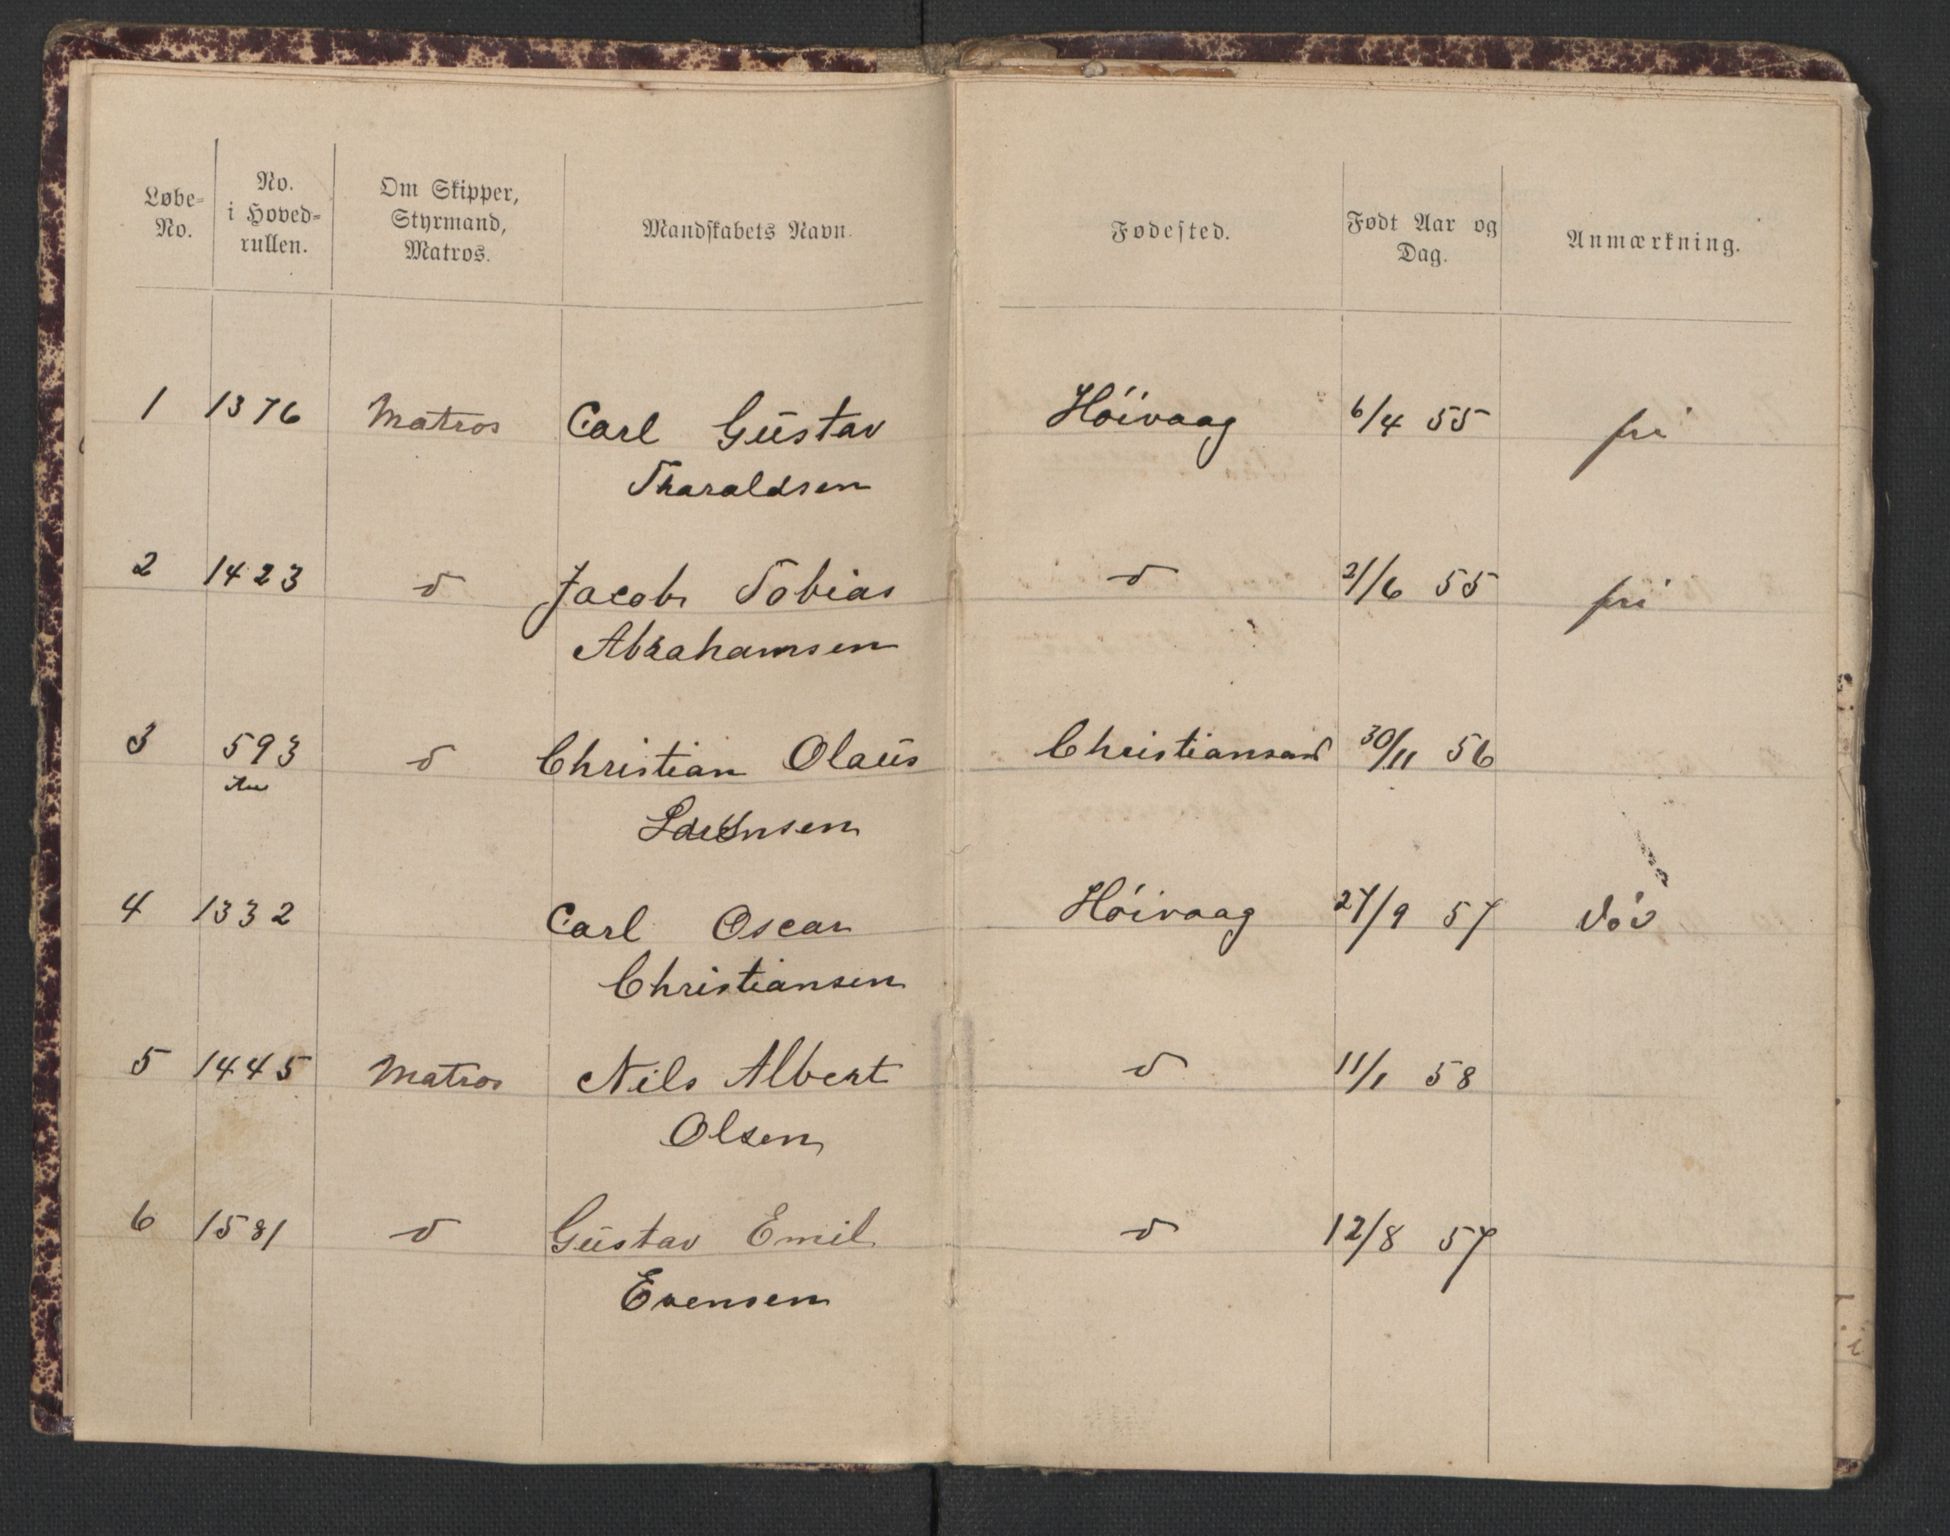 Løbe-No. | No. i Hoved-rullen. | Om Skipper, Styrmand, Matros. | Mandskabets Navn. | Fødested. | Født Aar og Dag. | Anmærkning.
1 1376 Matros Carl Gustav Høivaag 6/4 55 fri
Tharaldsen
2 1423 d Jacob Tobias d 21/6 55 fri
Abrahamsen
3 593 d Christian Olaus Christiansand 30/11 56
4 1332 Carl Oscar Høivaag 27/9 57 døv
Christiansen
5 1445 Matros Nils Albert d 11/1 58
Olsen
6 1581 d Gustav Emil d 12/8 57
Evensen